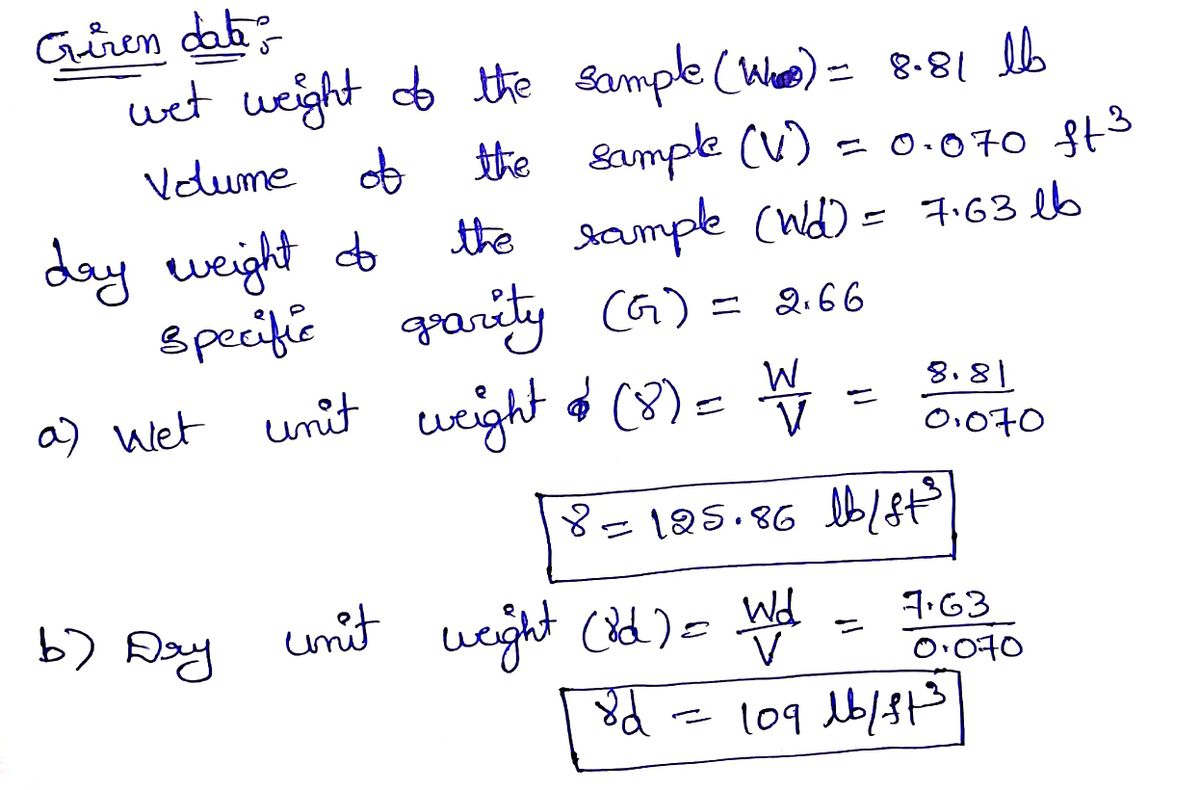 Given data :-
wet weight of the sample (W) = 8.81 lb
Volume of the sample (V) = 0.070 ft³
day weight of the sample (Wd) = 7.63 lb
specific gravity (G) = 2.66
a) Wet unit weight (γ) = W/V = 8.81/0.070
γ = 125.86 lb/ft³
b) Dry unit weight (γd) = Wd/V = 7.63/0.070
γd = 109 lb/ft³